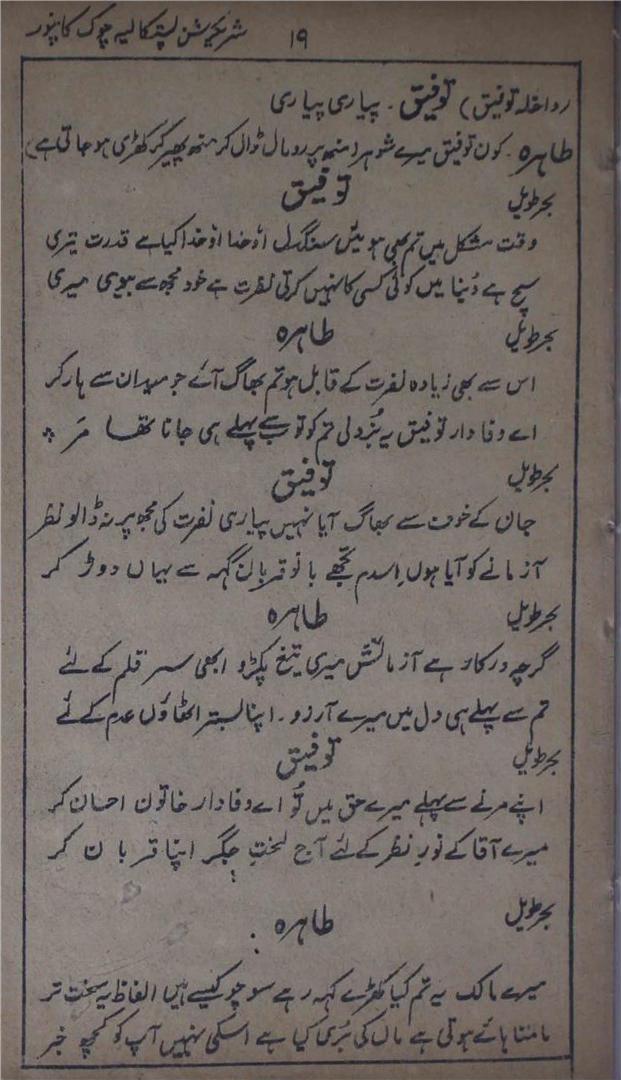 ۱۹ شریکرشن پستکالیہ چوک کانپور
(داخلہ توفیق) توفیق۔ پیاری پیاری
طاہرہ۔ کون توفیق میرے شوہر (منھ پر رومال ڈال کر منھ پھیر کر کھڑی ہو جاتی ہے)
بحر طویل توفیق
وقت مشکل میں تم بھی ہوئیں سنگدل اؤ خدا اؤ خدا کیا ہے قدرت تیری
سچ ہے دُنیا میں کوئی کسی کا نہیں کرتی نفرت ہے خود مجھ سے بیوی میری
بحر طویل طاہرہ
اس سے بھی زیادہ نفرت کے قابل ہو تم بھاگ آئے جو میدان سے ہار کر
اے وفادار توفیق یہ بُزدلی تم کو تو سب سے پہلے ہی جانا تھا مَر
بحر طویل توفیق
جان کے خوف سے بھاگ آیا نہیں پیاری نفرت کی مجھ پر نہ ڈالو نظر
آزمانے کو آیا ہوں اِسدم تجھے بانو قربان گہہ سے یہاں دوڑ کر
بحر طویل طاہرہ
گرچہ درکار ہے آزمائش میری تیغ پکڑو ابھی سر قلم کے لئے
تم سے پہلے ہی دل میں میرے آرزو۔ اپنا بستر اٹھاؤں عدم کے لئے
بحر طویل توفیق
اپنے مرنے سے پہلے میرے حق میں تُو اے وفادار خاتون احسان کر
میرے آقا کے نورِ نظر کے لئے آج لختِ جگر اپنا قربان کر
بحر طویل طاہرہ
میرے مالک یہ تم کیا کھڑے کہہ رہے سوچو کیسے ہیں الفاظ یہ سخت تر
مامتا ہائے ہوتی ہے ماں کی بُری کیا ہے اسکی نہیں آپ کو کچھ خبر